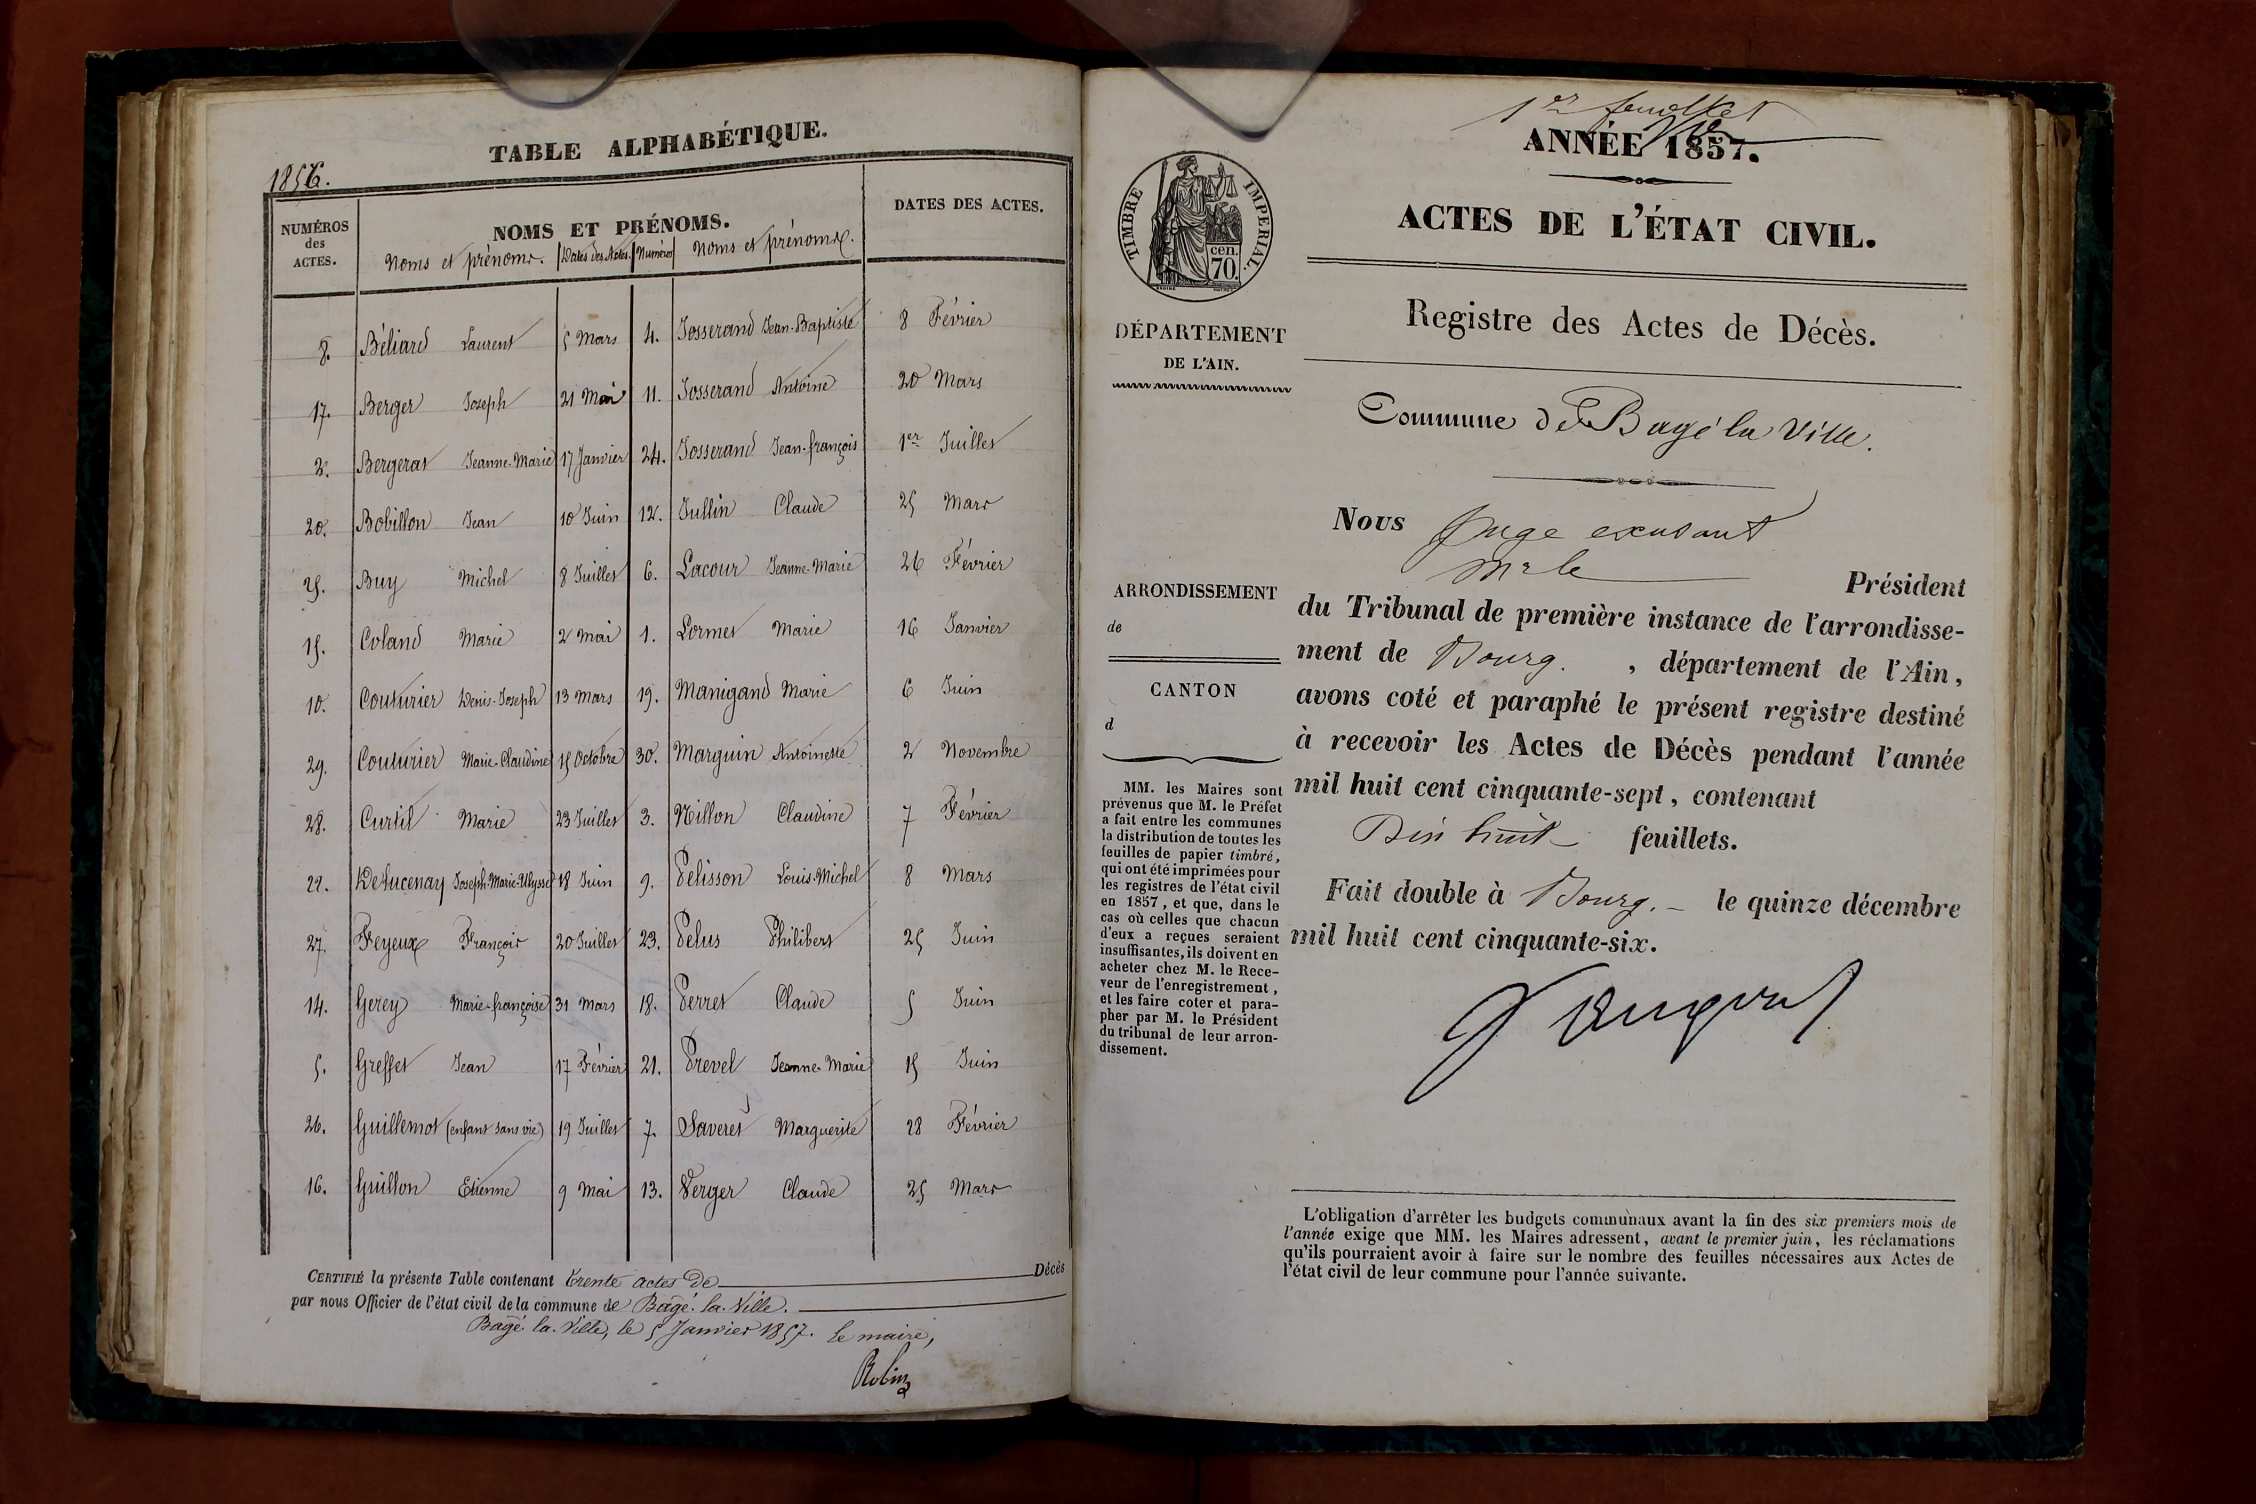 TABLE ALPHABÉTIQUE.
1856.
NUMÉROS des ACTES. NOMS ET PRÉNOMS. DATES DES ACTES.
Noms et prénoms. Dates des Actes. Numéros Noms et prénoms.
8. Béliard Laurent 5 Mars 4. Josserand Jean-Baptiste 8 Février
17. Berger Joseph 21 Mai 11. Josserand Antoine 20 Mars
2. Bergerat Jeanne-Marie 17 Janvier 24. Josserand Jean-françois 1er Juillet
20. Bobillon Jean 10 Juin 12. Jullin Claude 25 Mars
25. Buy Michel 8 Juillet 6. Lacour Jeanne-Marie 26 Février
15. Coland Marie 2 Mai 1. Lormet Marie 16 Janvier
10. Couturier Denis-Joseph 13 Mars 19. Manigand Marie 6 Juin
29. Couturier Marie-Claudine 15 Octobre 30. Marguin Antoinette 2 Novembre
28. Curtil Marie 23 Juillet 3. Nillon Claudine 7 Février
22. Delucenay Joseph-Marie-Ulysse 18 Juin 9. Pelisson Louis-Michel 8 Mars
27. Feyeux François 20 Juillet 23. Pelus Philibert 25 Juin
14. Gerey Marie-françoise 31 Mars 18. Perret Claude 5 Juin
5. Greffet Jean 17 Février 21. Prevel Jeanne-Marie 15 Juin
26. Guillemot (enfant sans vie) 19 Juillet 7. Saveret Marguerite 28 Février
16. Guillon Etienne 9 Mai 13. Verger Claude 25 Mars
CERTIFIÉ la présente Table contenant trente actes de Décès
par nous Officier de l'état civil de la commune de Bagé-la-Ville.
Bagé-la-Ville, le 5 Janvier 1857. le maire,
Robin
1er feuillet
ANNÉE 1857.
TIMBRE IMPERIAL.
cen. 70.
ACTES DE L'ÉTAT CIVIL.
Registre des Actes de Décès.
DÉPARTEMENT
DE L'AIN.
Commune de Bagé la Ville.
ARRONDISSEMENT
de
CANTON
d
MM. les Maires sont
prévenus que M. le Préfet
a fait entre les communes
la distribution de toutes les
feuilles de papier timbré,
qui ont été imprimées pour
les registres de l'état civil
en 1857, et que, dans le
cas où celles que chacun
d'eux a reçues seraient
insuffisantes, ils doivent en
acheter chez M. le Rece-
veur de l'enregistrement,
et les faire coter et para-
pher par M. le Président
du tribunal de leur arron-
dissement.
Nous Juge
Mr le Président
du Tribunal de première instance de l'arrondisse-
ment de Bourg. , département de l'Ain,
avons coté et paraphé le présent registre destiné
à recevoir les Actes de Décès pendant l'année
mil huit cent cinquante-sept, contenant
Dix huit feuillets.
Fait double à Bourg. le quinze décembre
mil huit cent cinquante-six.
L'obligation d'arrêter les budgets communaux avant la fin des six premiers mois de
l'année exige que MM. les Maires adressent, avant le premier juin, les réclamations
qu'ils pourraient avoir à faire sur le nombre des feuilles nécessaires aux Actes de
l'état civil de leur commune pour l'année suivante.